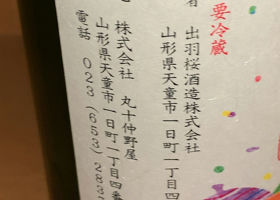 要冷蔵
者 出羽桜酒造株式会社
山形県天童市一日町一丁目四
株式会社 丸十仲野屋
山形県天童市一日町一丁目四番
電話 023(653)283